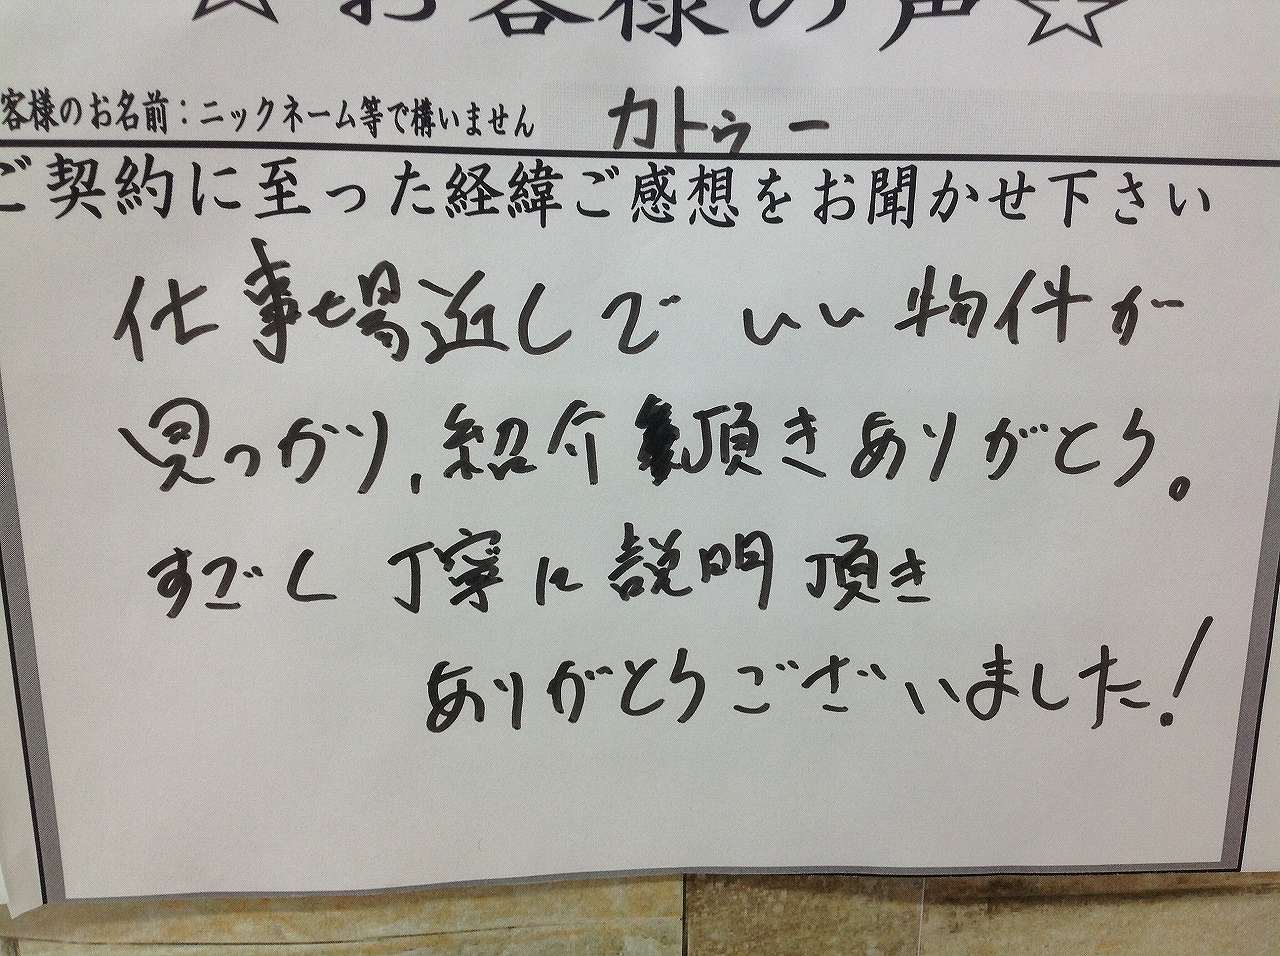 ☆お客様の声☆
客様のお名前：ニックネーム等で構いません カトゥー
ご契約に至った経緯ご感想をお聞かせ下さい
仕事場近しでいい物件が
見つかり、紹介頂きありがとう。
すごく丁寧に説明頂き
ありがとうございました!